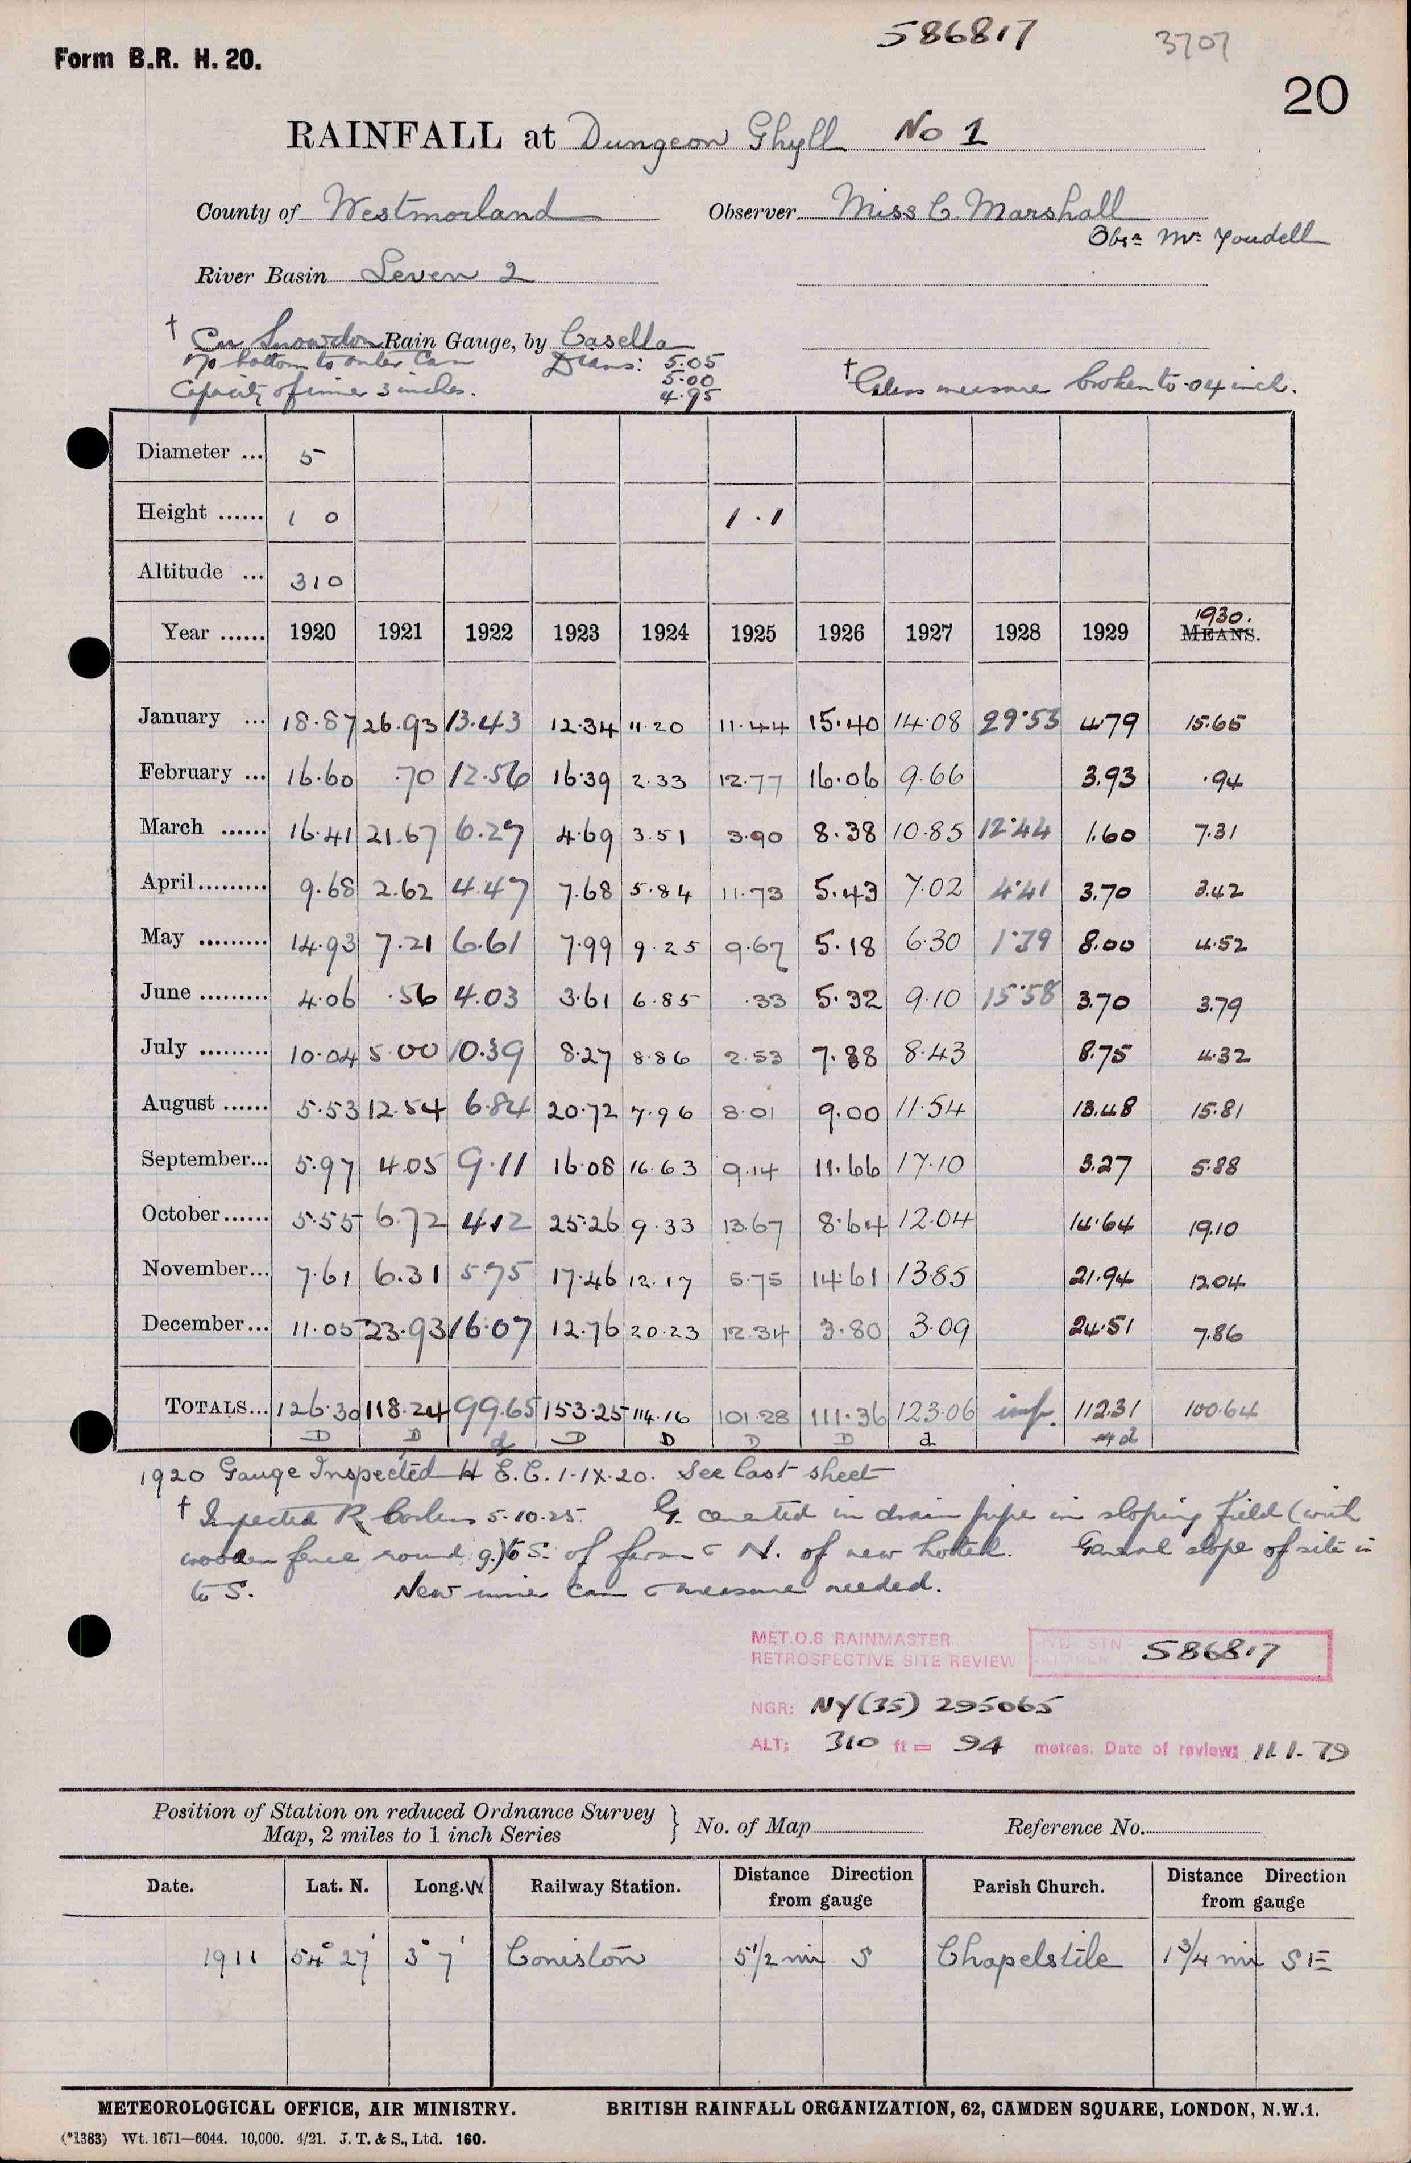 586817 3707
Form B.R. H. 20.
20
RAINFALL at Dungeon Ghyll No 1
County of Westmorland Observer Miss C. Marshall
Obsr Mr Youdell
River Basin Leven 2
† Cu Snowdon Rain Gauge, by Casella
No bottom to outer Can Diams: 5.05
5.00
Capacity of inner 3 inches. 4.95
† Glass measure broken to .04 inch.
Diameter ... 5
Height ...... 1 0 1.1
Altitude ... 310
Year ...... 1920 1921 1922 1923 1924 1925 1926 1927 1928 1929 1930. MEANS.
January ... 18.87 26.93 13.43 12.34 11.20 11.44 15.40 14.08 29.53 4.79 15.65
February ... 16.60 .70 12.56 16.39 2.33 12.77 16.06 9.66 3.93 .94
March ...... 16.41 21.67 6.27 4.69 3.51 3.90 8.38 10.85 12.44 1.60 7.31
April ......... 9.68 2.62 4.47 7.68 5.84 11.73 5.43 7.02 4.41 3.70 3.42
May ......... 14.93 7.21 6.61 7.99 9.25 9.67 5.18 6.30 1.39 8.00 4.52
June ......... 4.06 .56 4.03 3.61 6.85 .33 5.32 9.10 15.58 3.70 3.79
July ......... 10.04 5.00 10.39 8.27 8.86 2.53 7.88 8.43 8.75 4.32
August ...... 5.53 12.54 6.84 20.72 7.96 8.01 9.00 11.54 13.48 15.81
September... 5.97 4.05 9.11 16.08 16.63 9.14 11.66 17.10 3.27 5.88
October ...... 5.55 6.72 4.12 25.26 9.33 13.67 8.64 12.04 14.64 19.10
November... 7.61 6.31 5.75 17.46 12.17 5.75 14.61 13.85 21.94 12.04
December... 11.05 23.93 16.07 12.76 20.23 12.34 3.80 3.09 24.51 7.86
TOTALS... 126.30 118.24 99.65 153.25 114.16 101.28 111.36 123.06 imp. 112.31 100.64
D D d D D D D d d
1920 Gauge Inspected H E.C. 1-IX-20. See last sheet
† Inspected R Corless 5.10.25. G. cemented in drain pipe in sloping field (with
wooden fence round g.) to S. of farm & N. of new hotel. General slope of site is
to S. New inner can & measure needed.
MET.O.8 RAINMASTER
RETROSPECTIVE SITE REVIEW
STN 586817
NGR: NY(35) 295065
ALT: 310 ft = 94 metres. Date of review: 11.1.79
Position of Station on reduced Ordnance Survey
Map, 2 miles to 1 inch Series } No. of Map Reference No.
Date. Lat. N. Long. W Railway Station. Distance Direction from gauge Parish Church. Distance Direction from gauge
1911 54° 27' 3° 7' Coniston 5½ mi S Chapelstile 1¾ mi SE
METEOROLOGICAL OFFICE, AIR MINISTRY. BRITISH RAINFALL ORGANIZATION, 62, CAMDEN SQUARE, LONDON, N.W.1.
(*1383) Wt. 1671—6044. 10,000. 4/21. J. T. & S., Ltd. 160.